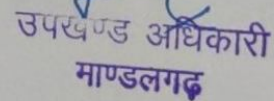 उपखण्ड अधिकारी
माण्डलगढ़